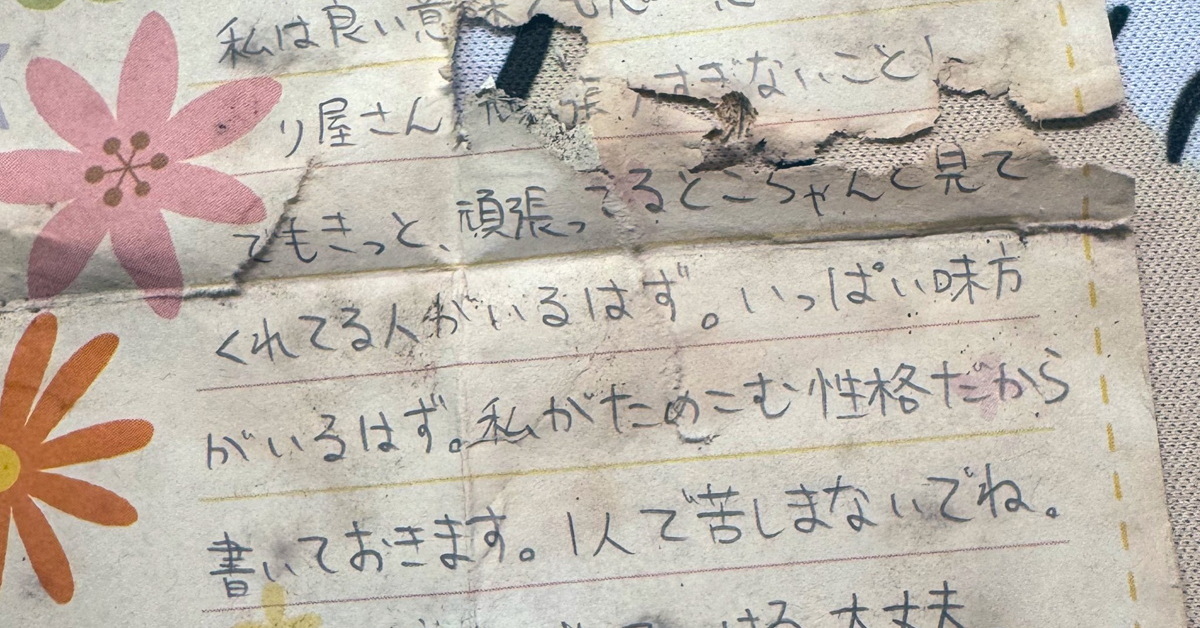 私は良い意味
り屋さん 頑張りすぎないこと!
でもきっと、頑張ってるとこちゃんと見て
くれてる人がいるはず。いっぱい味方
がいるはず。私がためこむ性格だから
書いておきます。1人で苦しまないでね。
大丈夫